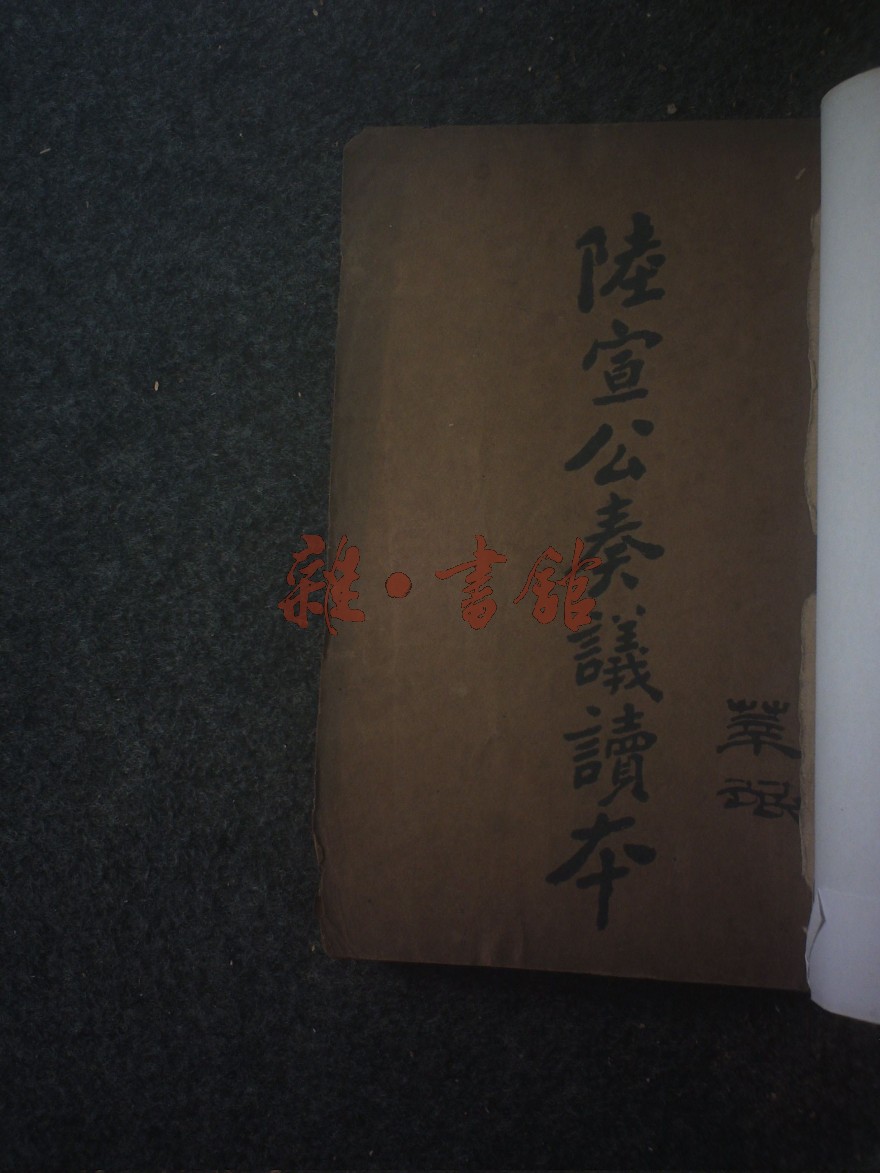 陸宣公奏議讀本
雜·書館